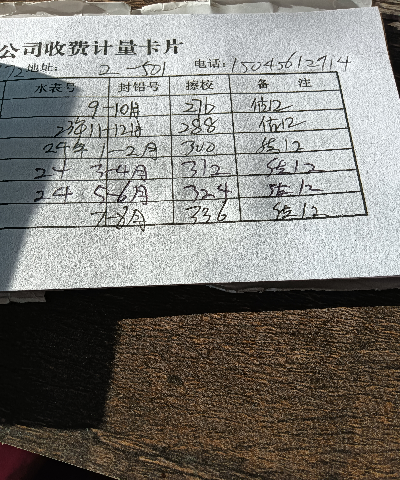 公司收费计量卡片
72 地址: 2-501 电话: 15045612914
水表号 封铅号 擦校 备 注
9-10月 估12
23年11-12月 288 估12
24年1-2月 300 估12
24 3-4月 312 估12
24 5-6月 324 估12
7-8月 336 估12